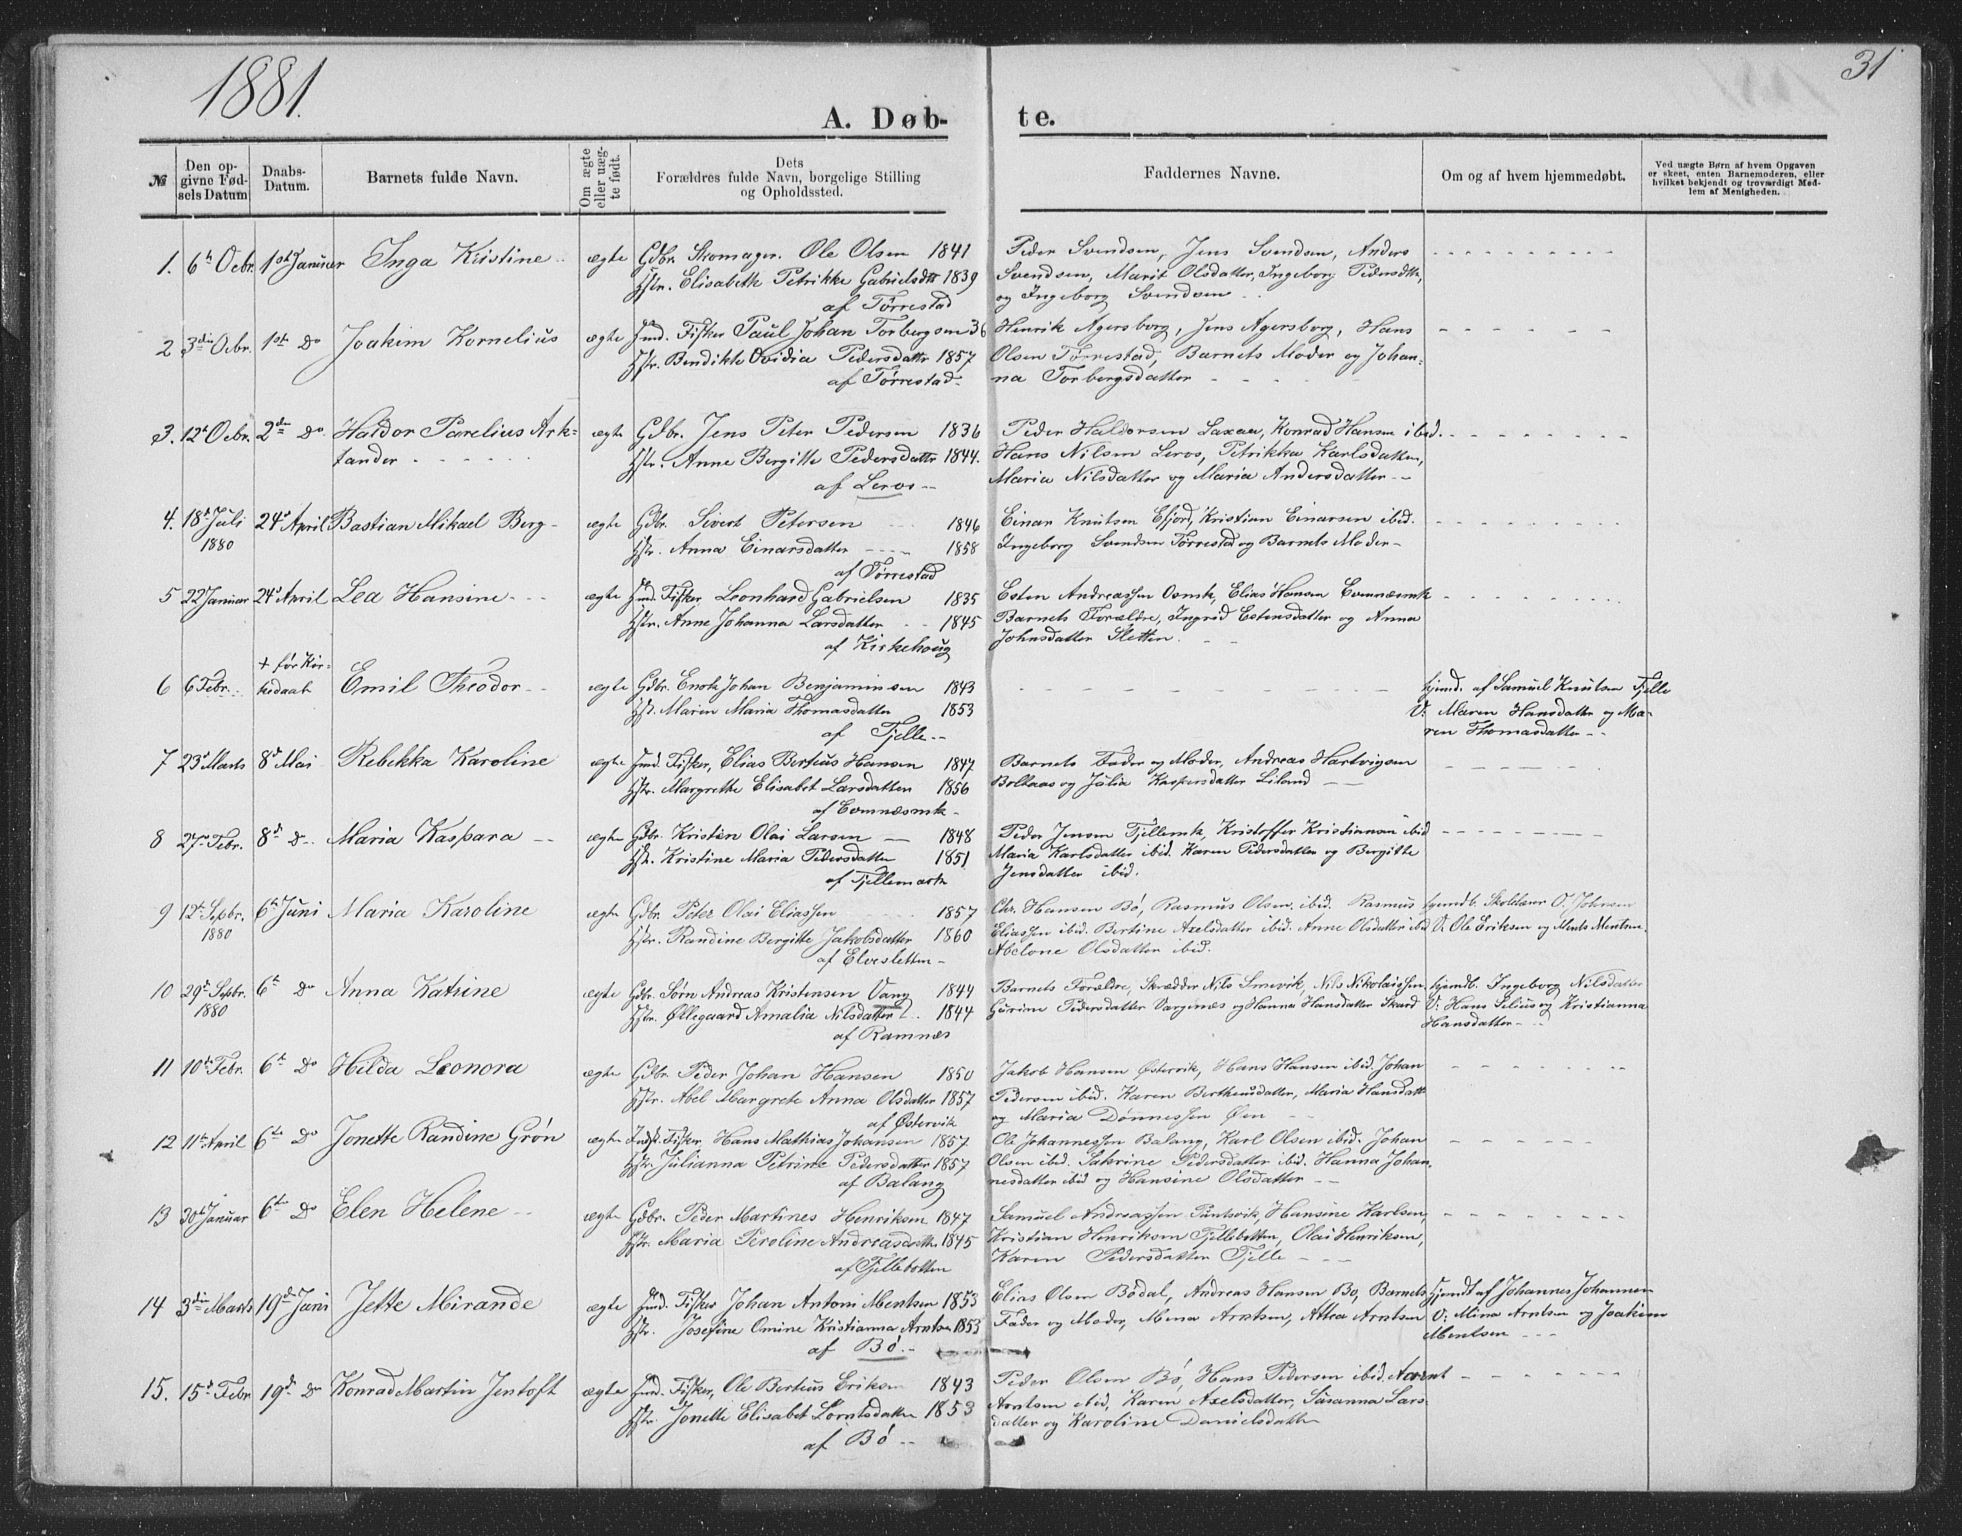 1881.
31
A. Døb-
te.
№
Den op-
givne Fød-
sels Datum
Daabs-
Datum.
Barnets fulde Navn.
Om ægte
eller uæg-
te født.
Dets
Forældres fulde Navn, borgelige Stilling
og Opholdssted.
Faddernes Navne.
Om og af hvem hjemmedøbt.
Ved uægte Børn af hvem Opgaven
er skeet, enten Barnemoderen, eller
hvilket bekjendt og troværdigt Med-
lem af Menigheden.
1. 6te Octbr. 1st Januar Inga Kristine ægte Gdbr. Skomager. Ole Olsen 1841
Hstr. Elisabeth Petrikke Gabrielsdtr 1839
af Tørrestad
Peder Svendsen, Jens Svendsen, Anders
Svendsen, Marit Olsdatter, Ingeborg Pedersdtr,
og Ingeborg Svendsen
2 3die Octbr. 1st Do Joakim Kornelius ægte Ind. Fisker Paul Johan Torbergsen 36
Hstr. Bendikte Ovidia Pedersdattr 1857
af Tørrestad
Henrik Agersborg, Jens Agersborg, Hans
Olsen Tørrestad, Barnets Moder og Johan-
na Torbergsdatter
3. 12te Octbr. 2den Do Haldor Parelius Ark-
tander ægte Gdbr. Jens Peter Pedersen 1836
Hstr. Anne Bergitte Pedersdattr 1844.
af Leros
Peder Haldorsen Saxaa, Konrad Hansen ibid.
Hans Nilsen Leros, Petrikka Karlsdatter,
Maria Nilsdatter og Maria Andersdatter
4. 18de Juli
1880 24de April Bastian Mikael Berg ægte Gdbr. Sivert Petersen 1846
Hstr. Anna Einarsdatter 1858
af Tørrestad
Einar Knutsen Efjord, Kristian Einarsen ibid.
Ingeborg Svendsen Tørrestad og Barnets Moder
5 22 Januar 24de April Lea Hansine ægte Ind. Fisker Leonhard Gabrielsen 1835
Hstr. Anne Johanna Larsdatter 1845
af Kirkehoug
Esten Andreassen Osmk, Elias Hansen Evenæsmk
Barnets Forældre, Ingrid Estensdatter og Anna
Johnsdatter Sletten.
6 6 Febr. + før Kir-
kedaab Emil Theodor ægte Gdbr. Enok Johan Benjaminsen 1843
Hst. Maren Maria Thomasdatter 1853
af Tjelle
hjemd. af Samuel Knutsen Tjelle
V: Maren Hansdatter og Ma-
ren Thomasdatter
7 23d Marts 8d Mai Rebekka Karoline ægte Ind. Fisker, Elias Berteus Hansen 1847
Hstr. Margrethe Elisabet Larsdatter 1856
af Evenæsmk
Barnets Fader og Moder, Andreas Hartvigsen
Boltaas og Julia Kaspersdatter Liland
8 27de Febr. 8d Do Maria Kaspara ægte Gdbr. Kristen Olai Larsen 1848
Hst. Kristine Maria Pedersdatter 1851
af Tjellemark
Peder Jensen Tjellemk, Kristoffer Kristiansen ibid
Maria Karlsdatter ibid. Karen Pedersdatter og Bergitte
Jensdatter ibid.
9 12te Sepbr.
1880 6te Juni Maria Karoline ægte Gdbr. Peter Olai Eliassen 1857
Hstr. Randine Bergitte Jakobsdatter 1860
af Elvesletten
Chr. Hansen Bø, Rasmus Olsen ibid. Rasmus
Eliassen ibid. Bertine Axelsdatter ibid. Anne Olsdatter ibid
Abelone Olsdatter ibid.
hjemdb. Skolelærer O. Johnsen
V. Ole Eriksen og Ments Mentsen
10 29de Sepbr.
1880 6te Do Anna Katrine ægte Gdbr. Sørn Andreas Kristensen Vang 1844
Hstr. Øllegaard Amalia Nilsdatter 1844
af Ramnæs
Barnets Forældre, Skrædder Nils Smevik, Nils Nikolaisen
Gurine Pedersdatter Varginæs og Hanna Hansdatter Skard
hjemdb. Ingeborg Nilsdatter
V: Hans Selius og Kristianna
Hansdatter
11 10de Febr. 6te Do Hilda Leonora ægte Gdbr. Peder Johan Hansen 1850
Hstr. Abel Margrete Anna Olsdatter 1857
af Østervik
Jakob Hansen Østervik, Hans Hansen ibid. Johan
Pedersen ibid. Karen Bertheusdatter, Maria Hansdatt
og Maria Dønnessen Øen
12 11te April 6te Do Jonette Randine Grøn ægte Indst. Fisker Hans Mathias Johansen 1857
Hstr. Julianna Petrine Pedersdatter 1857
af Balang
Ole Johannessen Balang, Karl Olsen ibid. Johan
Olsen ibid. Katrine Pedersdatter ibid. Hanna Johan-
nesdatter ibid og Hansine Olsdatter
13 30te Januar 6te Do Elen Helene ægte Gdbr. Peder Martines Henriksen 1847
Hstr. Maria Peroline Andreasdatter 1845
af Tjellebotten
Samuel Andreassen Puntsvik, Hansine Karlsen,
Kristian Henriksen Tjellebotten, Olai Henriksen,
Karen Pedersdatter Tjelle
14 3die Marts 19de Juni Jette Mirande ægte Ind. Fisker Johan Antoni Mentsen 1853
Hstr. Josefine Omine Kristianna Arntsen 1853
af Bø.
Elias Olsen Bødal, Andreas Hansen Bø, Barnets
Fader og Moder, Mena Arntsen, Altea Arntsen
Hjemdt af Johannes Johannesen
V: Mina Arntsen og Joakim
Mentsen
15. 15de Febr 19de Do Konrad Martin Jentoft ægte Ind. Fisker, Ole Berteus Eriksen 1843
Hstr. Jonette Elisabet Lorntsdatter 1853
af Bø
Peder Olsen Bø, Hans Pedersen ibid. Aarnt
Arntsen ibid, Karen Axelsdatter, Susanna Lars-
datter og Karoline Danielsdatter